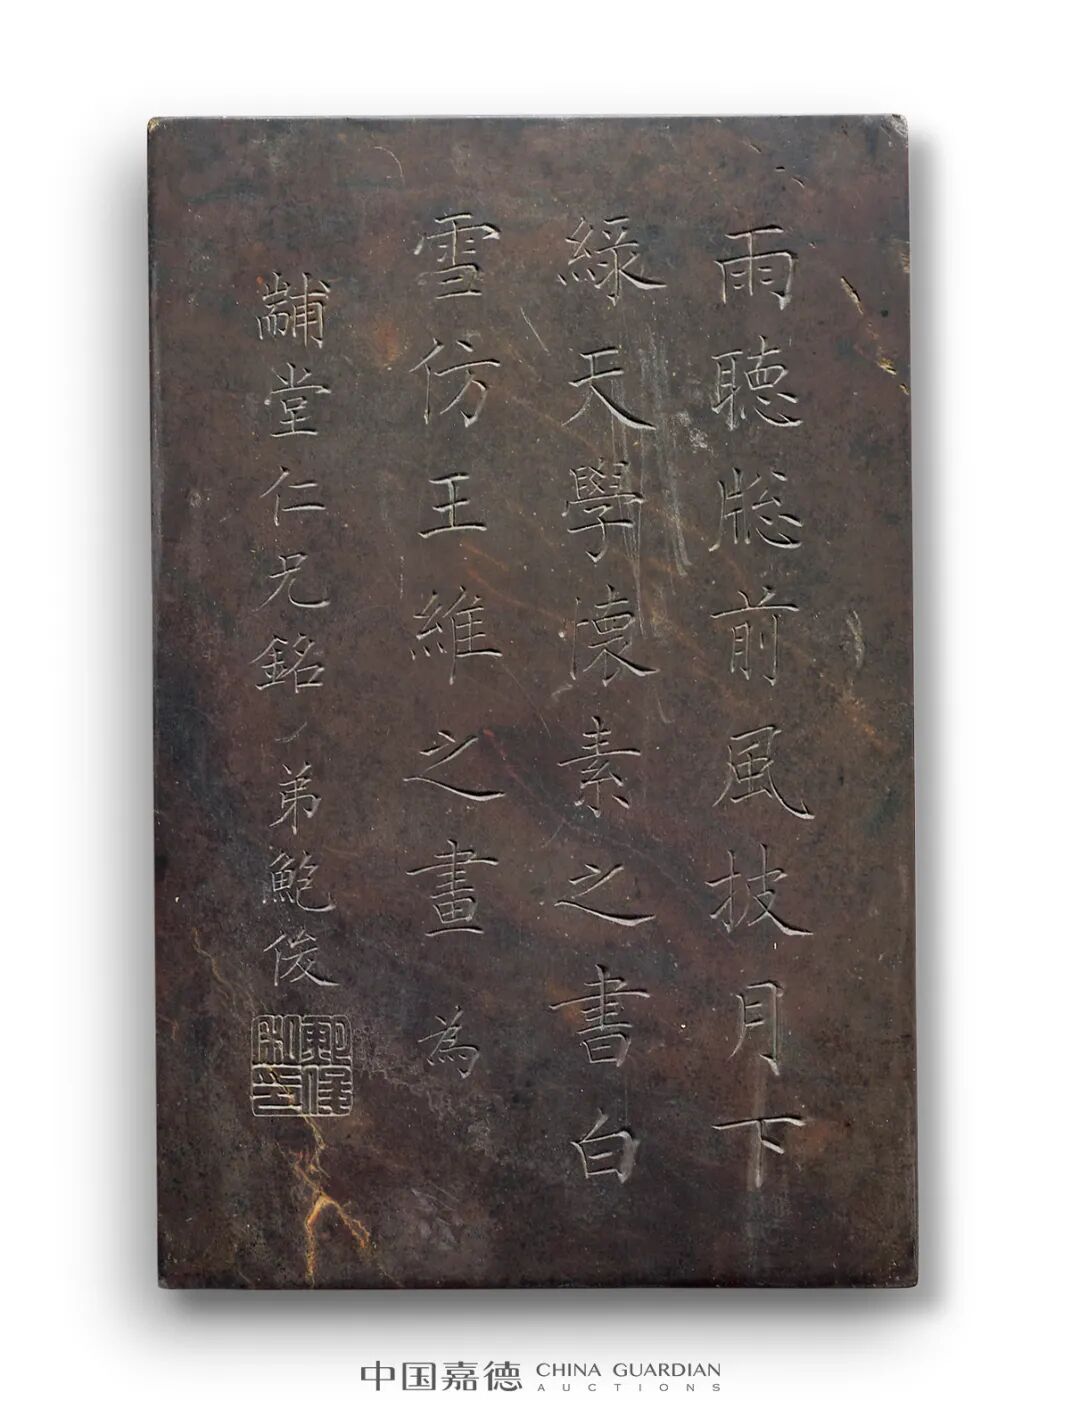 雨聽牕前風披月下
綠天學懷素之書白
雪仿王維之畫為
黼堂仁兄銘 弟鮑俊
鮑俊私印
中国嘉德 CHINA GUARDIAN
AUCTIONS